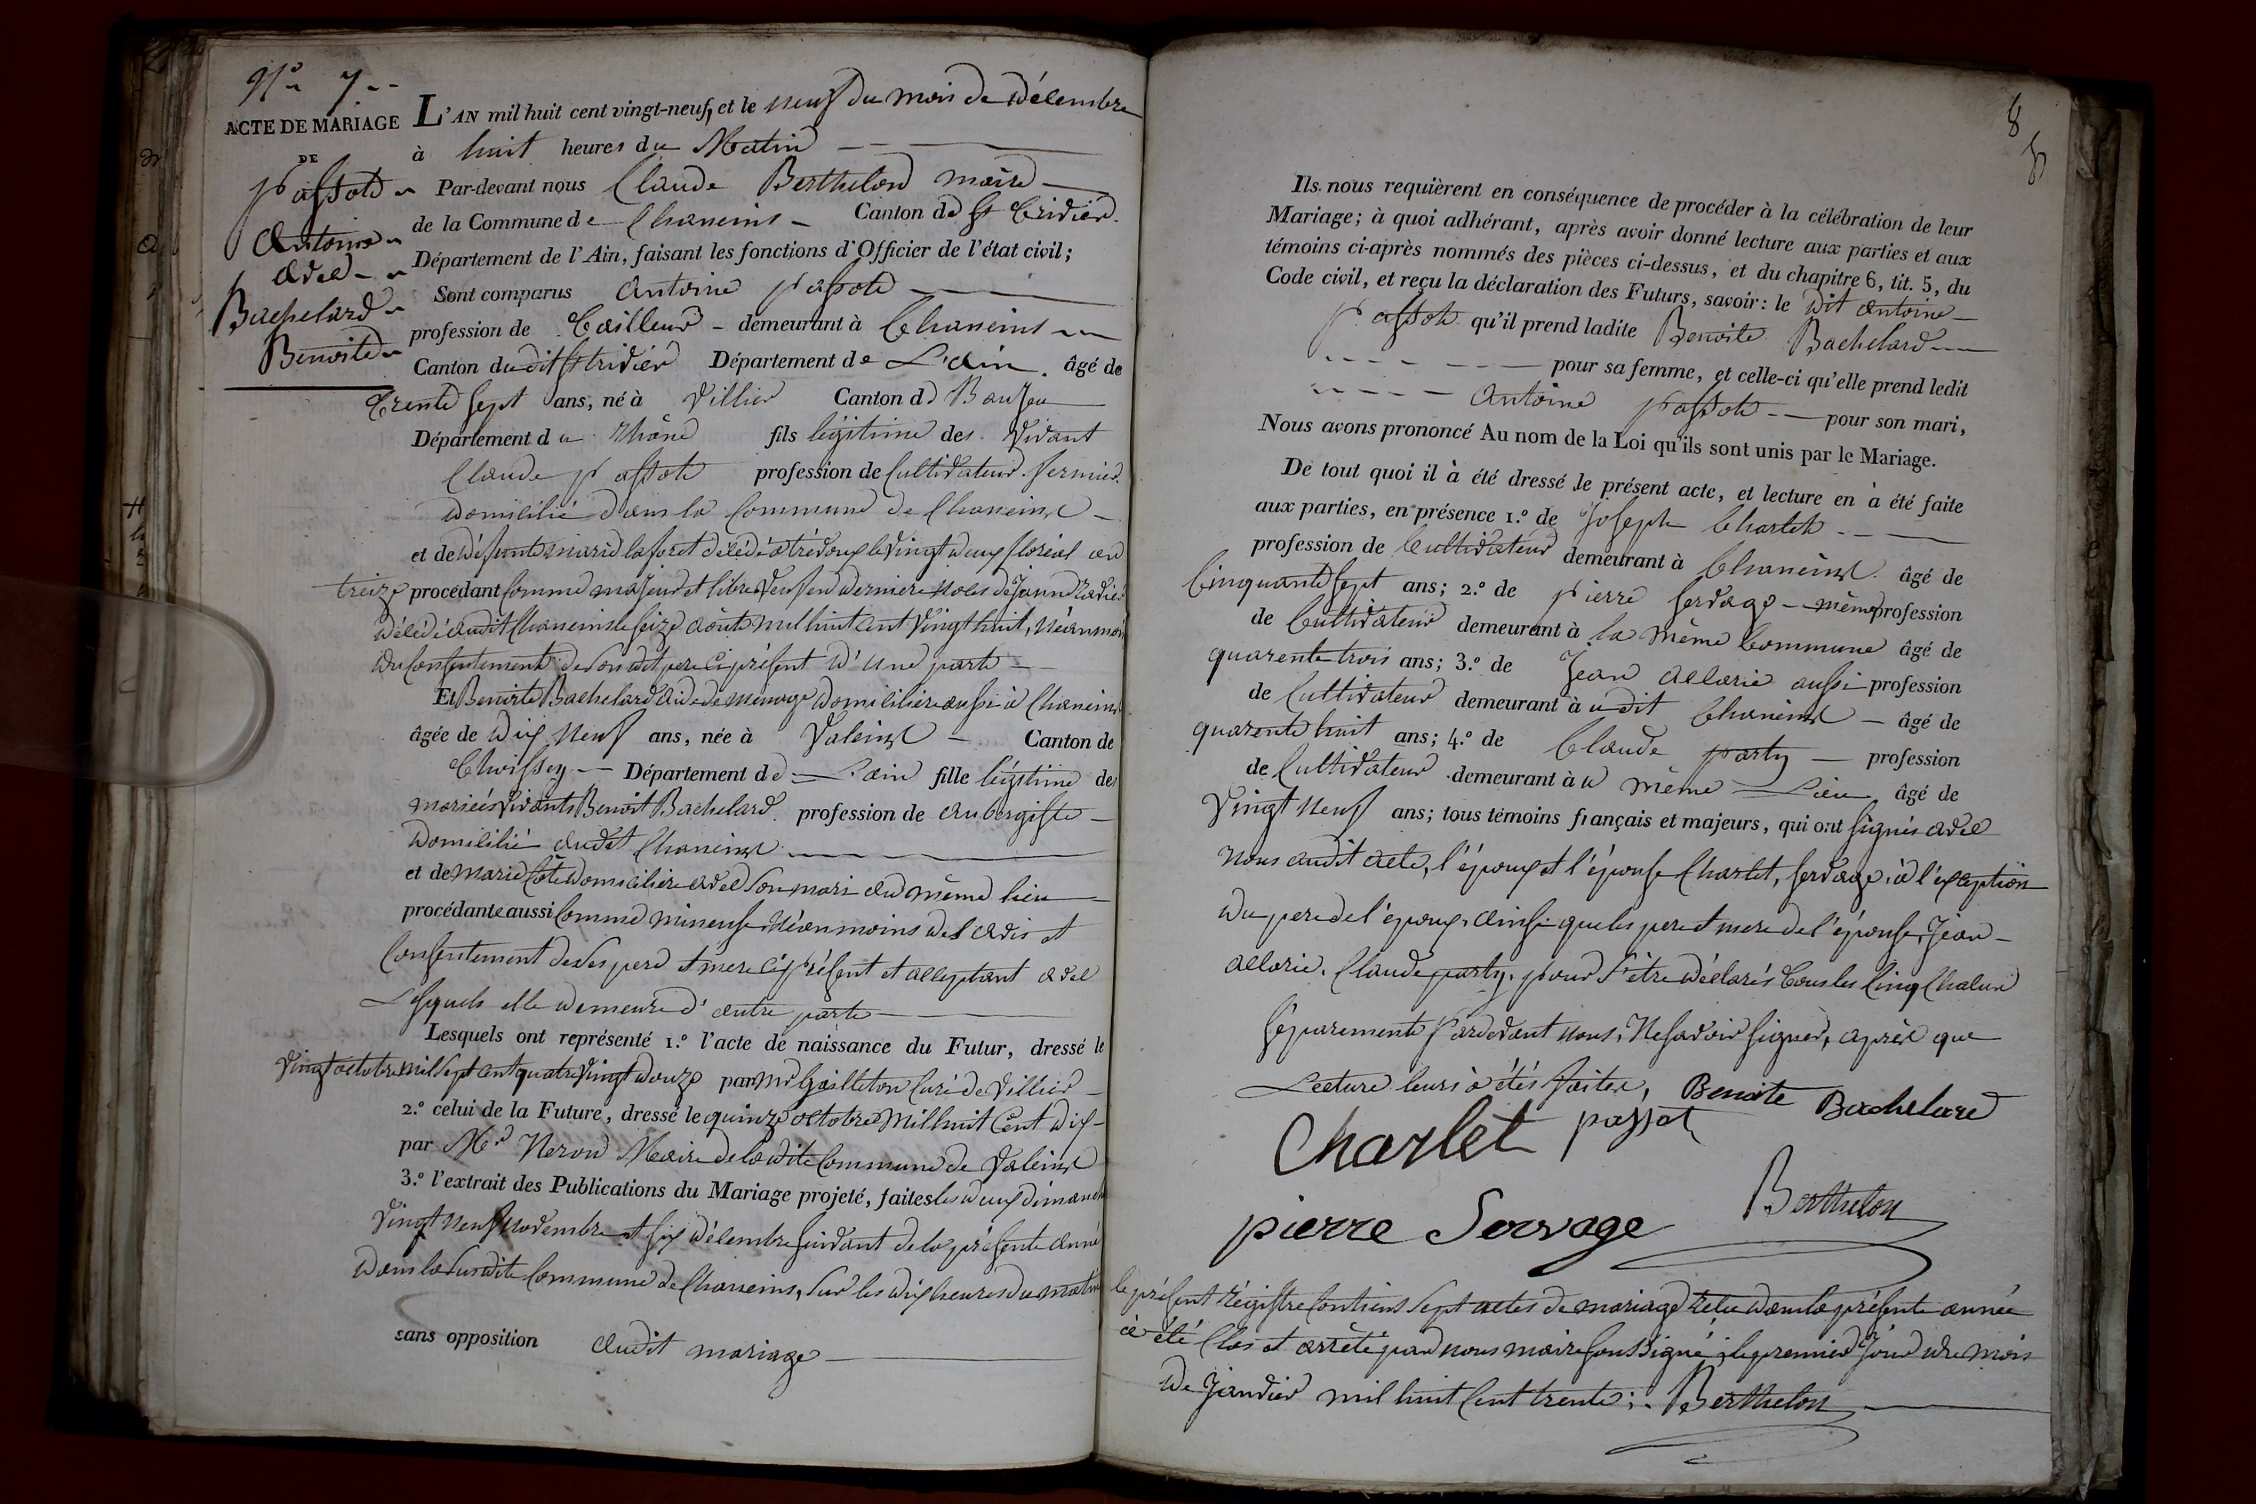 N.° 7
ACTE DE MARIAGE
DE
passot
Antoine
avec
Bachelard
Benoite
L'AN mil huit cent vingt-neuf, et le neuf du mois de décembre
à huit heures du Matin
Par-devant nous Claude Berthelon maire
de la Commune de Chaneins Canton de St Tridier
Département de l'Ain, faisant les fonctions d'Officier de l'état civil;
Sont comparus Antoine passot
profession de Tailleur demeurant à Chaneins
Canton dudit St tridier Département de L'ain âgé de
trente sept ans, né à Villier Canton de Baujeu
Département du Rhône fils légitime des vivant
Claude passot profession de Cultivateur fermier
domicilié dans la Commune de Chaneins
et de défunte marie laforet décédé à trévoux le vingt deux floréal an
treize procédant Comme majeur et libre veuf en derniere noces de Jeanne
décédé audit Chaneins le seize août mil huit cent vingt huit, Néanmoin
du Consentement de son dit pere ci présent d'une part
Et Benoite Bachelard aide de menage domiciliere aussi à Chaneins
âgée de dix neuf ans, née à Valeins Canton de
Thoissey Département de L'ain fille légitime des
mariés vivants Benoit Bachelard profession de aubergiste
domicilié audit Chaneins
et de marie Côte domiciliere avec son mari au même lieu
procédante aussi Comme mineuse Néanmoins de l'avis et
Consentement de ses pere et mere ci présent et acceptant avec
Lesquels elle demeure d'autre part
Lesquels ont représenté 1.° l'acte de naissance du Futur, dressé le
vingt octobre mil sept cent quatre vingt douze par Mr Gailleton Curé de Villier
2.° celui de la Future, dressé le quinze octobre mil huit cent dix
par Mr Neron Maire de la dite Commune de Valeins
3.° l'extrait des Publications du Mariage projeté, faites les deux dimanche
vingt neuf novembre et six décembre suivant de la présente année
dans la susdite Commune de Chaneins, sur les dix heures du matin
sans opposition audit mariage
8
Ils nous requièrent en conséquence de procéder à la célébration de leur
Mariage; à quoi adhérant, après avoir donné lecture aux parties et aux
témoins ci-après nommés des pièces ci-dessus, et du chapitre 6, tit. 5, du
Code civil, et reçu la déclaration des Futurs, savoir: le dit Antoine
passot qu'il prend ladite Benoite Bachelard
pour sa femme, et celle-ci qu'elle prend ledit
Antoine passot pour son mari,
Nous avons prononcé Au nom de la Loi qu'ils sont unis par le Mariage.
De tout quoi il à été dressé le présent acte, et lecture en à été faite
aux parties, en présence 1.° de Joseph Charlet
profession de Cultivateur demeurant à Chaneins âgé de
Cinquante sept ans; 2.° de pierre servage même profession
de Cultivateur demeurant à la même Commune âgé de
quarente trois ans; 3.° de Jean allarie aussi profession
de Cultivateur demeurant à udit Chaneins âgé de
quarente huit ans; 4.° de Claude party profession
de Cultivateur demeurant à u même Lieu âgé de
vingt neuf ans; tous témoins français et majeurs, qui ont signés avec
nous audit acte, l'époux et l'épouse Charlet, servage, à l'exception
du pere de l'époux, ainsi que les pere et mere de l'épouse, Jean
allarie, Claude party, pour s'être déclarés tous les Cinq Chalun
séparement pardevant nous, Ne savoir signer, après que
Lecture leurs à étés faites, Benoite Bachelard
Charlet passot
pierre Servage Berthelon
le présent régistre contiens sept actes de mariage reçu dans la présente année
à été Clos et arrêté par nous maire soussigné; le premier Jour du mois
de Janvier mil huit Cent trente; Berthelon